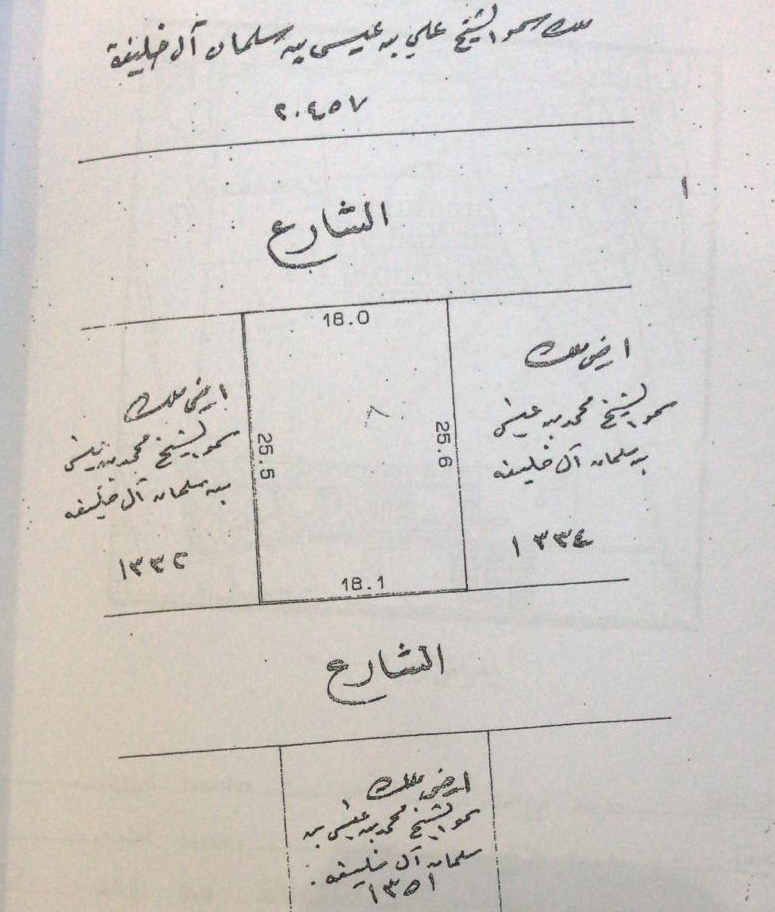 ملك سمو الشيخ علي بن عيسى بن سلمان آل خليفة
٢٠٤٥٧
الشارع
18.0
ارض ملك
سمو الشيخ محمد بن عيسى
بن سلمان آل خليفه
١٣٣٤
25.6
25.5
ارض ملك
سمو الشيخ محمد بن عيسى
بن سلمان آل خليفه
١٣٣٢
18.1
الشارع
ارض ملك
سمو الشيخ محمد بن عيسى بن
سلمان آل خليفه
١٣٥١